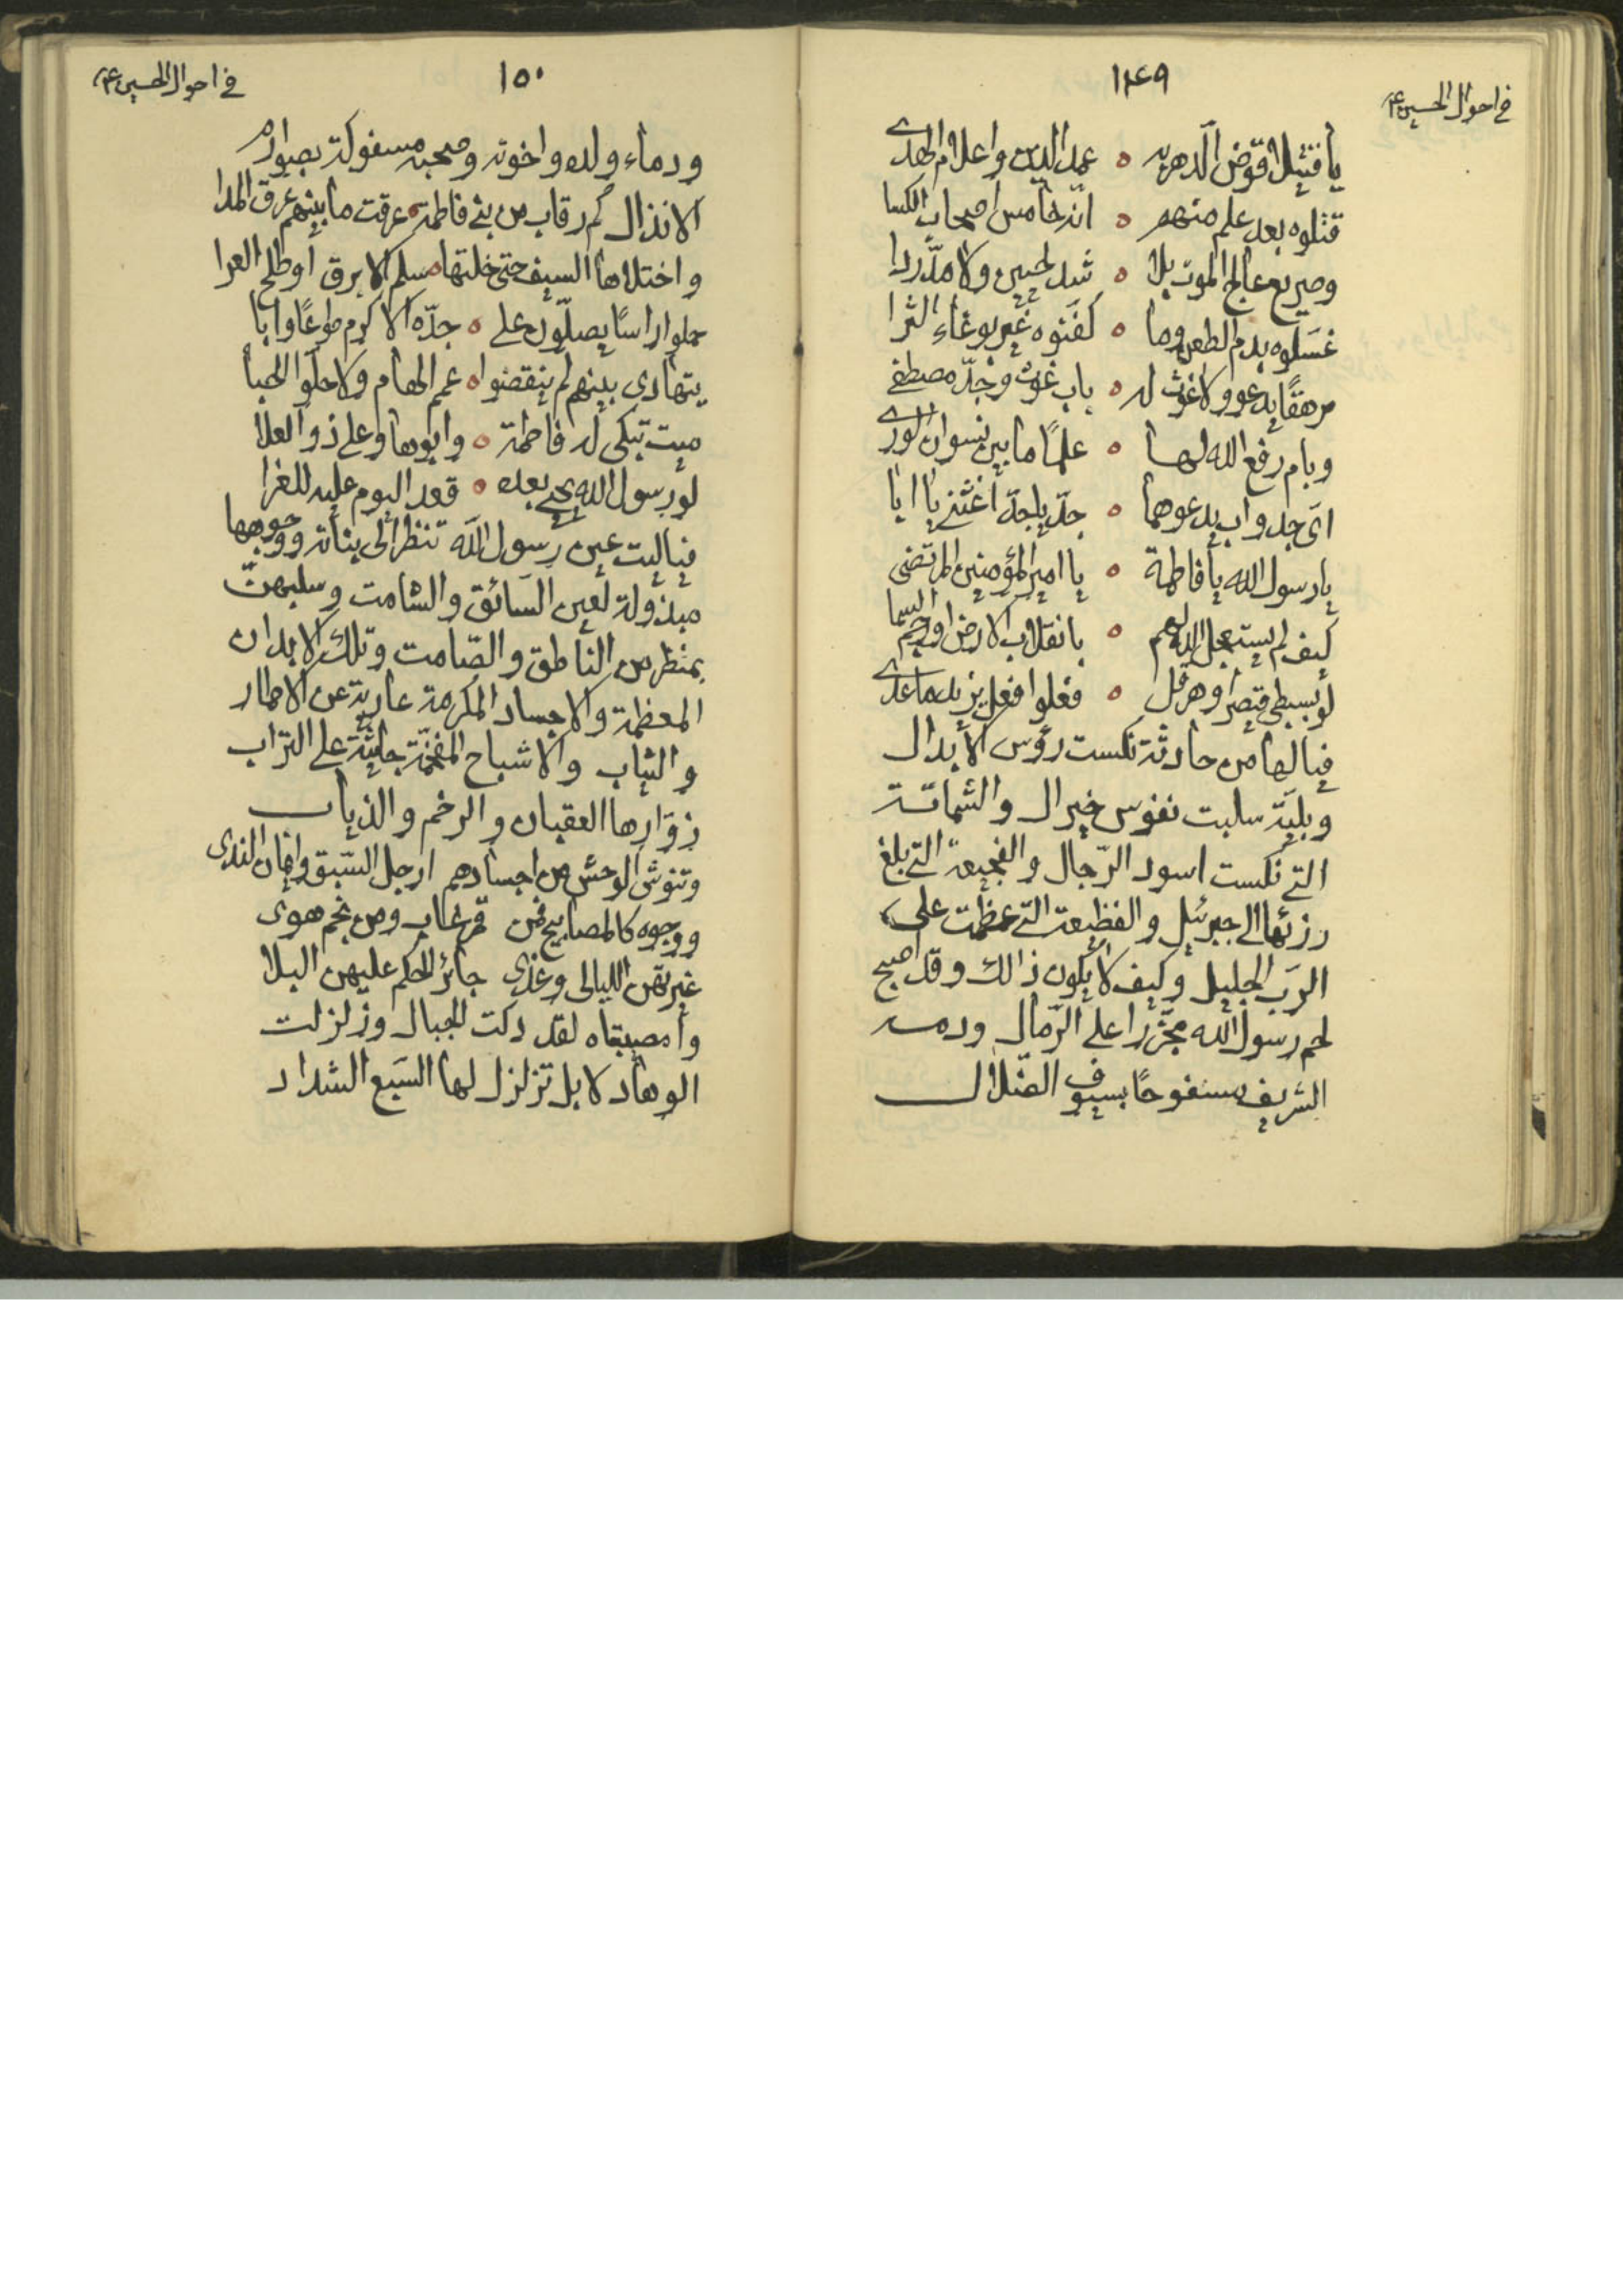 في احوال الحسين ع
١٤٩
يا قتيلا قوّض الدهر به ٥ عمد الدين واعلام الهدى
قتلوه بعد علم منهم ٥ انّه خامس اصحاب الكسا
وصريع عالج الموت بلا ٥ شد لحيين ولا مدّ ردا
غسّلوه بدم الطعن وما ٥ كفنوه غير بوغاء الثرا
مرهقًا يدعو ولا غوث له ٥ باب غوث وجدّ مصطفى
وبام رفع الله لها ٥ علمًا ما بين نسوان الورى
اى جد واب يدعوهما ٥ جدّ يا جدّ اغثني يا ابا
يا رسول الله يا فاطمة ٥ يا امير المؤمنين المرتضى
كيف لم يستعجل الله لهم ٥ بانقلاب الارض او رجم السما
لو بسبطي قيصر او هرقل ٥ فعلوا فعل يزيد ما عدى
فيا لها من حادثة نكست رؤس الأبدال
وبليّة سلبت نفوس خير ال والشماتة
التي نكست اسود الرّجال والفجيعة التي بلغ
رزئها الى جبرئيل والفظيعة التي عظمت على
الربّ الجليل وكيف لا يكون ذالك وقد اصبح
لحم رسول الله مجزّرا على الرّمال ودمه
الشريف مسفوحًا بسيوف الضّلال
في احوال الحسين ع
١٥٠
ودماء ولده واخوته وصحبه مسفوكة بصوارم
الانذال كم رقاب من بني فاطمة عرقت ما بينهم عرق المدا
واختلاها السيف حتى خلتها ٥ سلم الابرق او طلح العرا
حملوا راسًا يصلّون على ٥ جدّه الاكرم طوعًا وابا
يتهادى بينهم لم ينقضوا ٥ عمم الهام ولا حلّوا الحبا
ميت تبكى له فاطمة ٥ وابوها وعلى ذو العلا
لو رسول الله يحيى بعده ٥ قعد اليوم عليه للعزا
فيا ليت عين رسول الله تنظر الى بناته ووجوهها
مبذولة لعين السائق والشامت وسلبهنّ
بمنظر من الناطق والصّامت وتلك الابدان
المعظمة والاجساد المكرمة عارية عن الاطمار
والثياب والاشباح المفخمّة جاثية على التراب
زوّارها العقبان والرخم والذياب
وتنوش الوحش من اجسادهم ارجل السّبق وايمان الندى
ووجوه كالمصابيح فمن قمر غاب ومن نجم هوى
غيرتهن الليالى وغدى جائز الحكم عليهن البلا
وا مصيبتاه لقد دكت الجبال وزلزلت
الوهاد لا بل تزلزل لها السّبع الشداد